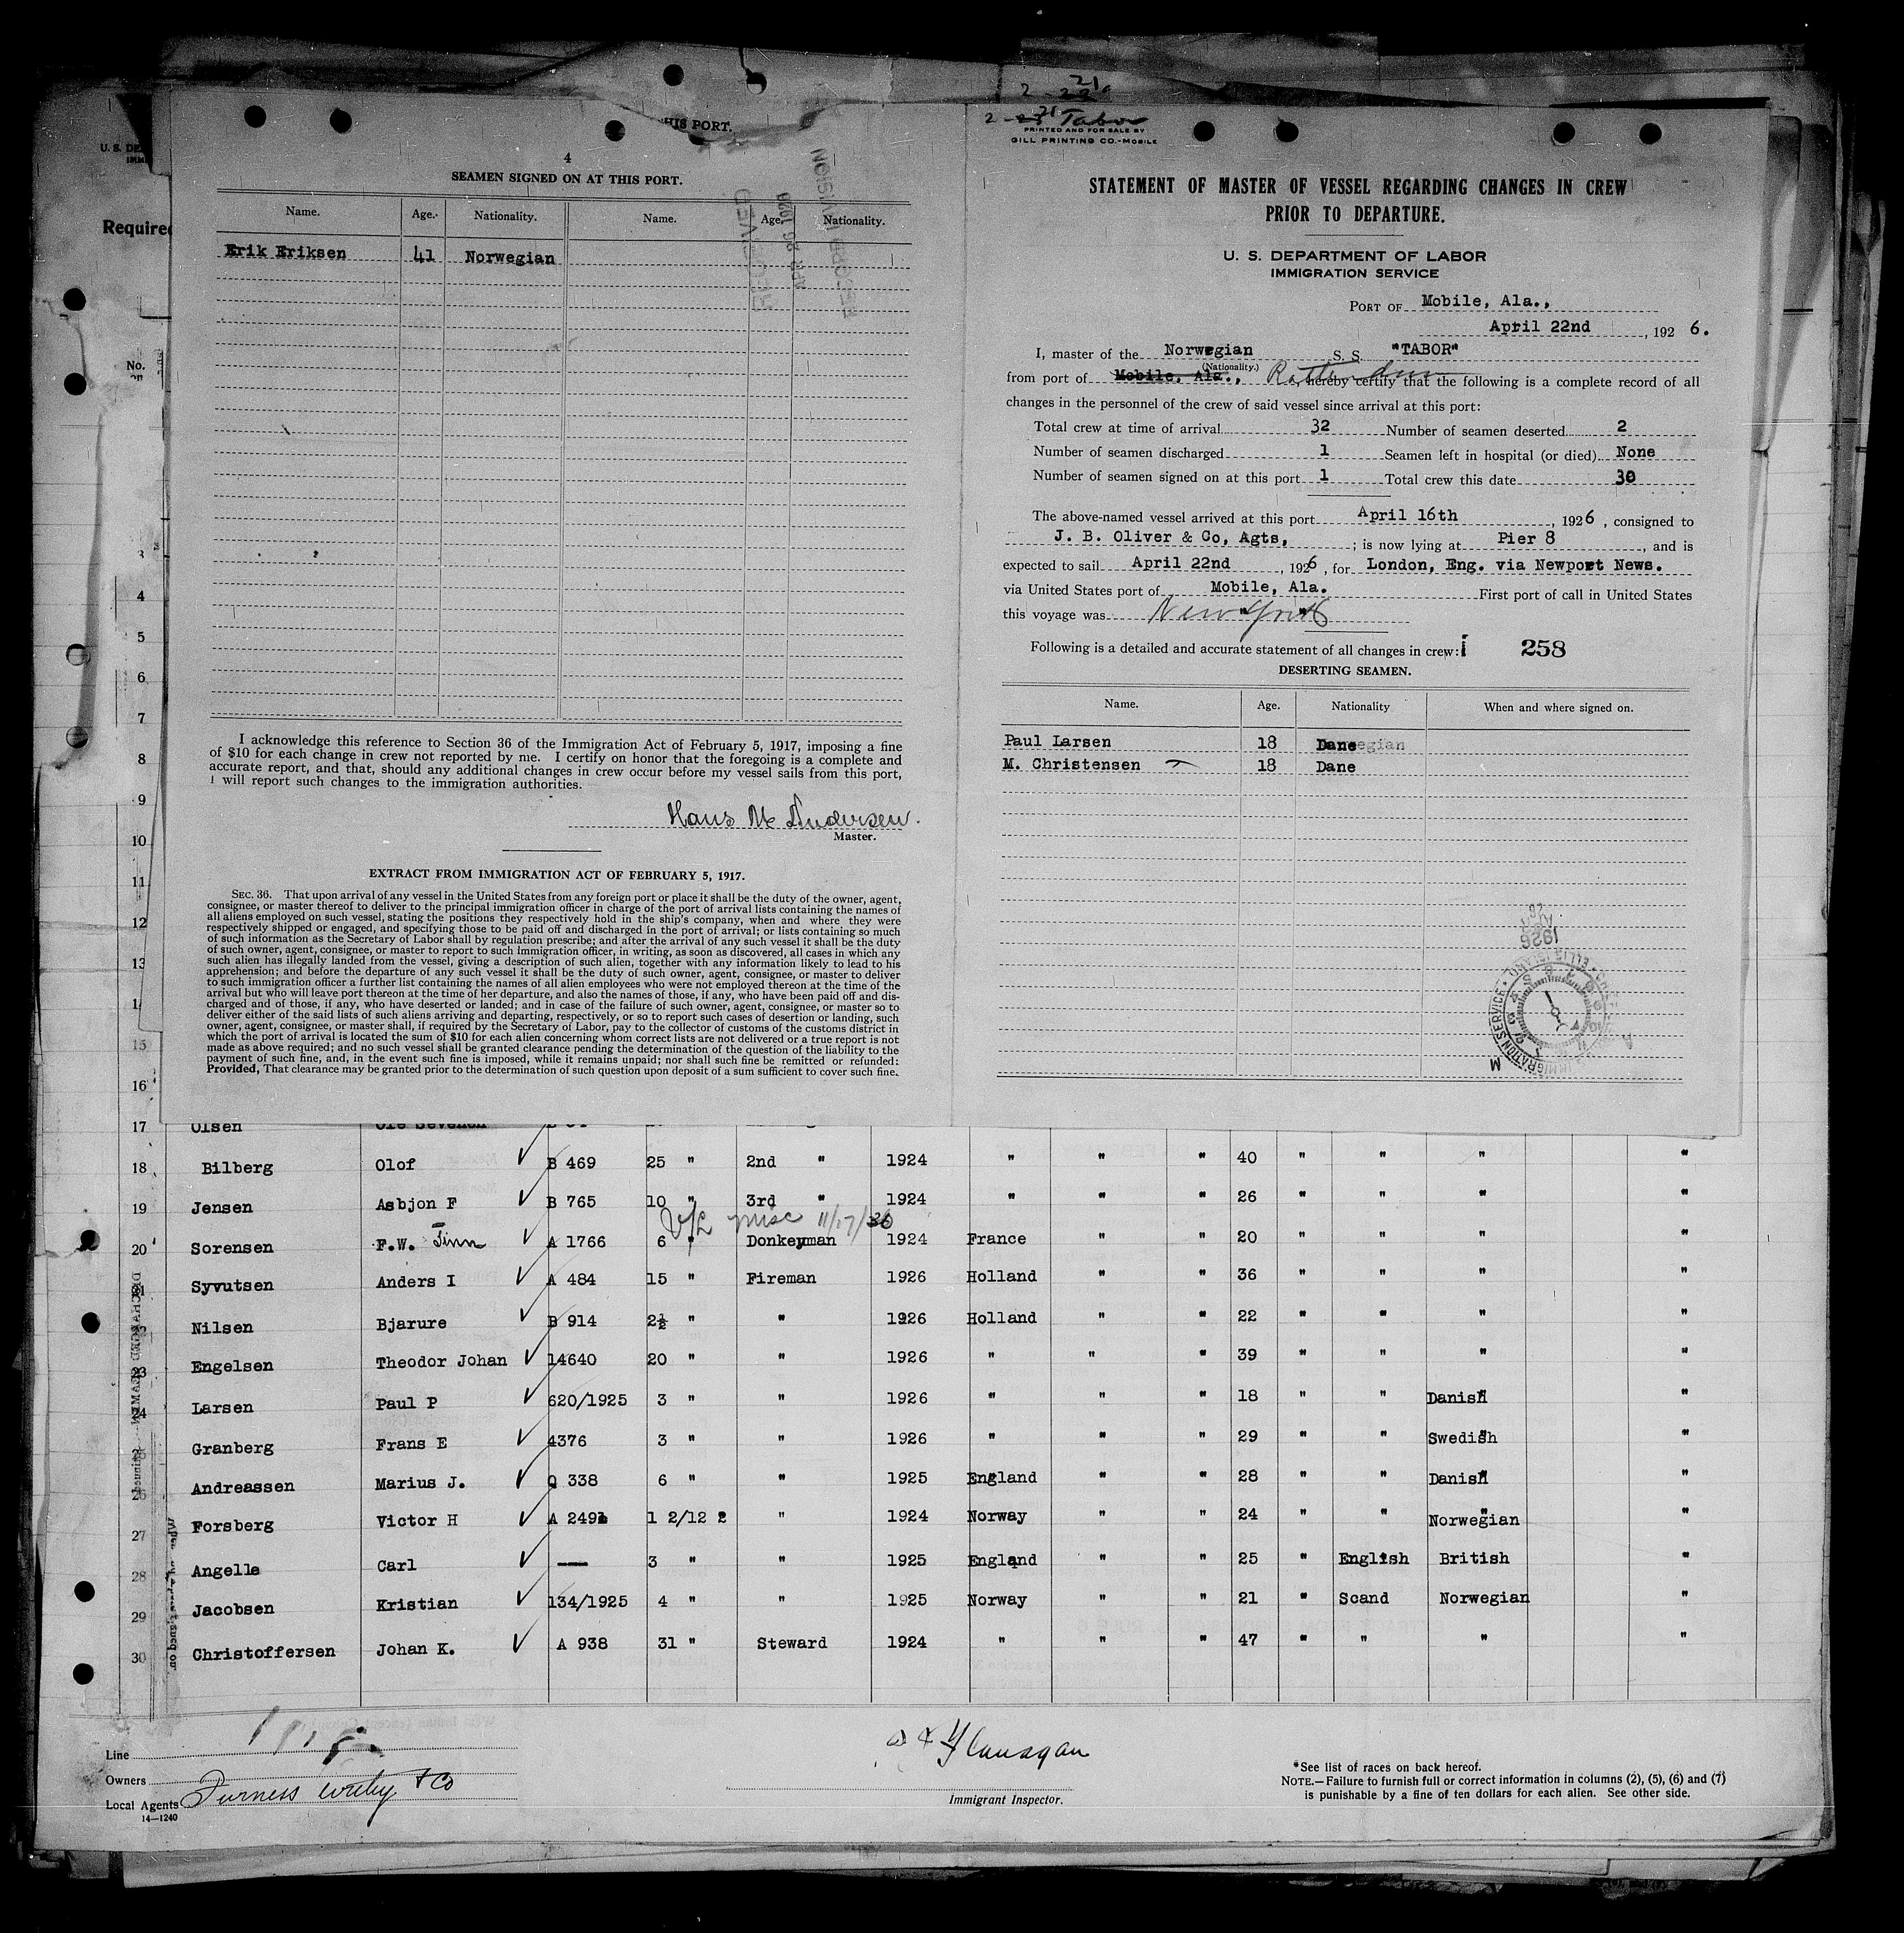 2 - 22
21
2 - 21 Tabor
PRINTED AND FOR SALE BY
GILL PRINTING CO.-MOBILE
HIS PORT.
4
SEAMEN SIGNED ON AT THIS PORT.
Name. Age. Nationality. Name. Age. Nationality.
Erik Eriksen 41 Norwegian
RECEIVED
APR 26 1926
RECORD DIVISION
I acknowledge this reference to Section 36 of the Immigration Act of February 5, 1917, imposing a fine
of $10 for each change in crew not reported by me. I certify on honor that the foregoing is a complete and
accurate report, and that, should any additional changes in crew occur before my vessel sails from this port,
I will report such changes to the immigration authorities.
Hans M Andersen.
Master.
EXTRACT FROM IMMIGRATION ACT OF FEBRUARY 5, 1917.
SEC. 36. That upon arrival of any vessel in the United States from any foreign port or place it shall be the duty of the owner, agent,
consignee, or master thereof to deliver to the principal immigration officer in charge of the port of arrival lists containing the names of
all aliens employed on such vessel, stating the positions they respectively hold in the ship's company, when and where they were
respectively shipped or engaged, and specifying those to be paid off and discharged in the port of arrival; or lists containing so much
of such information as the Secretary of Labor shall by regulation prescribe; and after the arrival of any such vessel it shall be the duty
of such owner, agent, consignee, or master to report to such immigration officer, in writing, as soon as discovered, all cases in which any
such alien has illegally landed from the vessel, giving a description of such alien, together with any information likely to lead to his
apprehension; and before the departure of any such vessel it shall be the duty of such owner, agent, consignee, or master to deliver
to such immigration officer a further list containing the names of all alien employees who were not employed thereon at the time of the
arrival but who will leave port thereon at the time of her departure, and also the names of those, if any, who have been paid off and dis-
charged and of those, if any, who have deserted or landed; and in case of the failure of such owner, agent, consignee, or master so to
deliver either of the said lists of such aliens arriving and departing, respectively, or so to report such cases of desertion or landing, such
owner, agent, consignee, or master shall, if required by the Secretary of Labor, pay to the collector of customs of the customs district in
which the port of arrival is located the sum of $10 for each alien concerning whom correct lists are not delivered or a true report is not
made as above required; and no such vessel shall be granted clearance pending the determination of the question of the liability to the
payment of such fine, and, in the event such fine is imposed, while it remains unpaid; nor shall such fine be remitted or refunded:
Provided, That clearance may be granted prior to the determination of such question upon deposit of a sum sufficient to cover such fine.
STATEMENT OF MASTER OF VESSEL REGARDING CHANGES IN CREW
PRIOR TO DEPARTURE.
U. S. DEPARTMENT OF LABOR
IMMIGRATION SERVICE
PORT OF Mobile, Ala.,
April 22nd , 192 6.
I, master of the Norwegian S. S. "TABOR"
(Nationality.)
from port of Mobile, Ala., Rotterdam , hereby certify that the following is a complete record of all
changes in the personnel of the crew of said vessel since arrival at this port:
Total crew at time of arrival 32 Number of seamen deserted 2
Number of seamen discharged 1 Seamen left in hospital (or died) None
Number of seamen signed on at this port 1 Total crew this date 30
The above-named vessel arrived at this port April 16th , 1926 , consigned to
J. B. Oliver & Co, Agts, ; is now lying at Pier 8 , and is
expected to sail April 22nd , 1926 , for London, Eng. via Newport News.
via United States port of Mobile, Ala. First port of call in United States
this voyage was New York
Following is a detailed and accurate statement of all changes in crew: 258
DESERTING SEAMEN.
Name. Age. Nationality When and where signed on.
Paul Larsen 18 Dane
M. Christensen 18 Dane
1926
IMMIGRATION SERVICE · ELLIS ISLAND
U. S. DE
IMMI
Required
No.
on
3
4
5
6
7
8
9
10
11
12
13
1
15
16
17 Olsen Ole
18 Bilberg Olof B 469 25 " 2nd " 1924 " " " 40 " " " "
19 Jensen Asbjon F B 765 10 " 3rd " 1924 " " " 26 " " " "
misc 11/17/36
20 Sorensen F.W. Finn A 1766 6 " Donkeyman 1924 France " " 20 " " " "
21 Syvutsen Anders I A 484 15 " Fireman 1926 Holland " " 36 " " " "
Nilsen Bjarure B 914 2½ " " 1926 Holland " " 22 " " " "
23 Engelsen Theodor Johan 14640 20 " " 1926 " " " 39 " " " "
24 Larsen Paul P 620/1925 3 " " 1926 " " " 18 " " Danish "
Granberg Frans E 4376 3 " " 1926 " " " 29 " " Swedish "
26 Andreassen Marius J. Q 338 6 " " 1925 England " " 28 " " Danish "
27 Forsberg Victor H A 2491 1 2/12 2 " 1924 Norway " " 24 " " Norwegian "
28 Angelle Carl — 3 " " 1925 England " " 25 " English British "
29 Jacobsen Kristian 134/1925 4 " " 1925 Norway " " 21 " Scand Norwegian "
30 Christoffersen Johan K. A 938 31 " Steward 1924 " " " 47 " " " "
DISCHARGED SEAMEN
Line
Owners
Local Agents Furness Withy & Co
14—1240
Flanagan
Immigrant Inspector.
*See list of races on back hereof.
NOTE.—Failure to furnish full or correct information in columns (2), (5), (6) and (7)
is punishable by a fine of ten dollars for each alien. See other side.